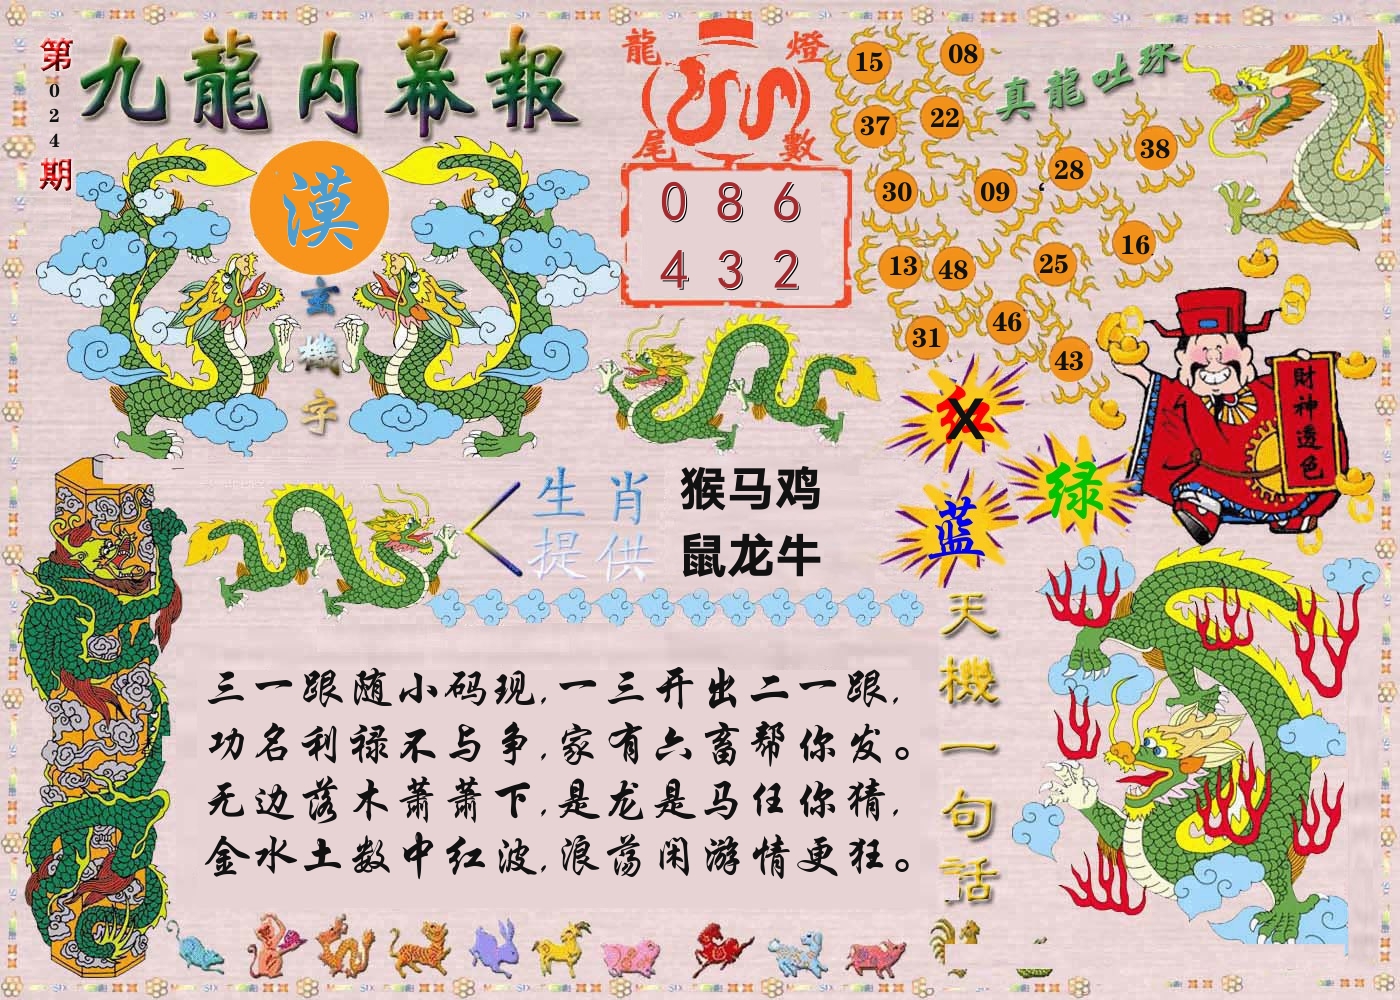 第024期
九龍内幕報
漠
玄機字
龍燈
尾數
0 8 6
4 3 2
真龍吐珠
15
08
37
22
38
28
30
09
16
13
48
25
31
46
43
財神透色
红
X
绿
蓝
生肖
提供
猴马鸡
鼠龙牛
天機一句話
三一跟随小码现,一三开出二一跟,
功名利禄不与争,家有六畜帮你发。
无边落木萧萧下,是龙是马任你猜,
金水土数中红波,浪荡闲游情更狂。